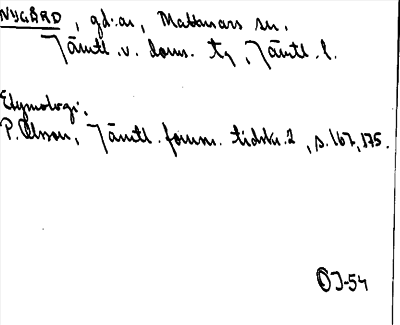 NYGÅRD, gd:ar, Mattmars sn.
Jämtl. v. doms. tg, Jämtl. l.
Etymologi:
P. Olsson, Jämtl. fornm. tidskr. 2, s. 167, 175.
OJ-54